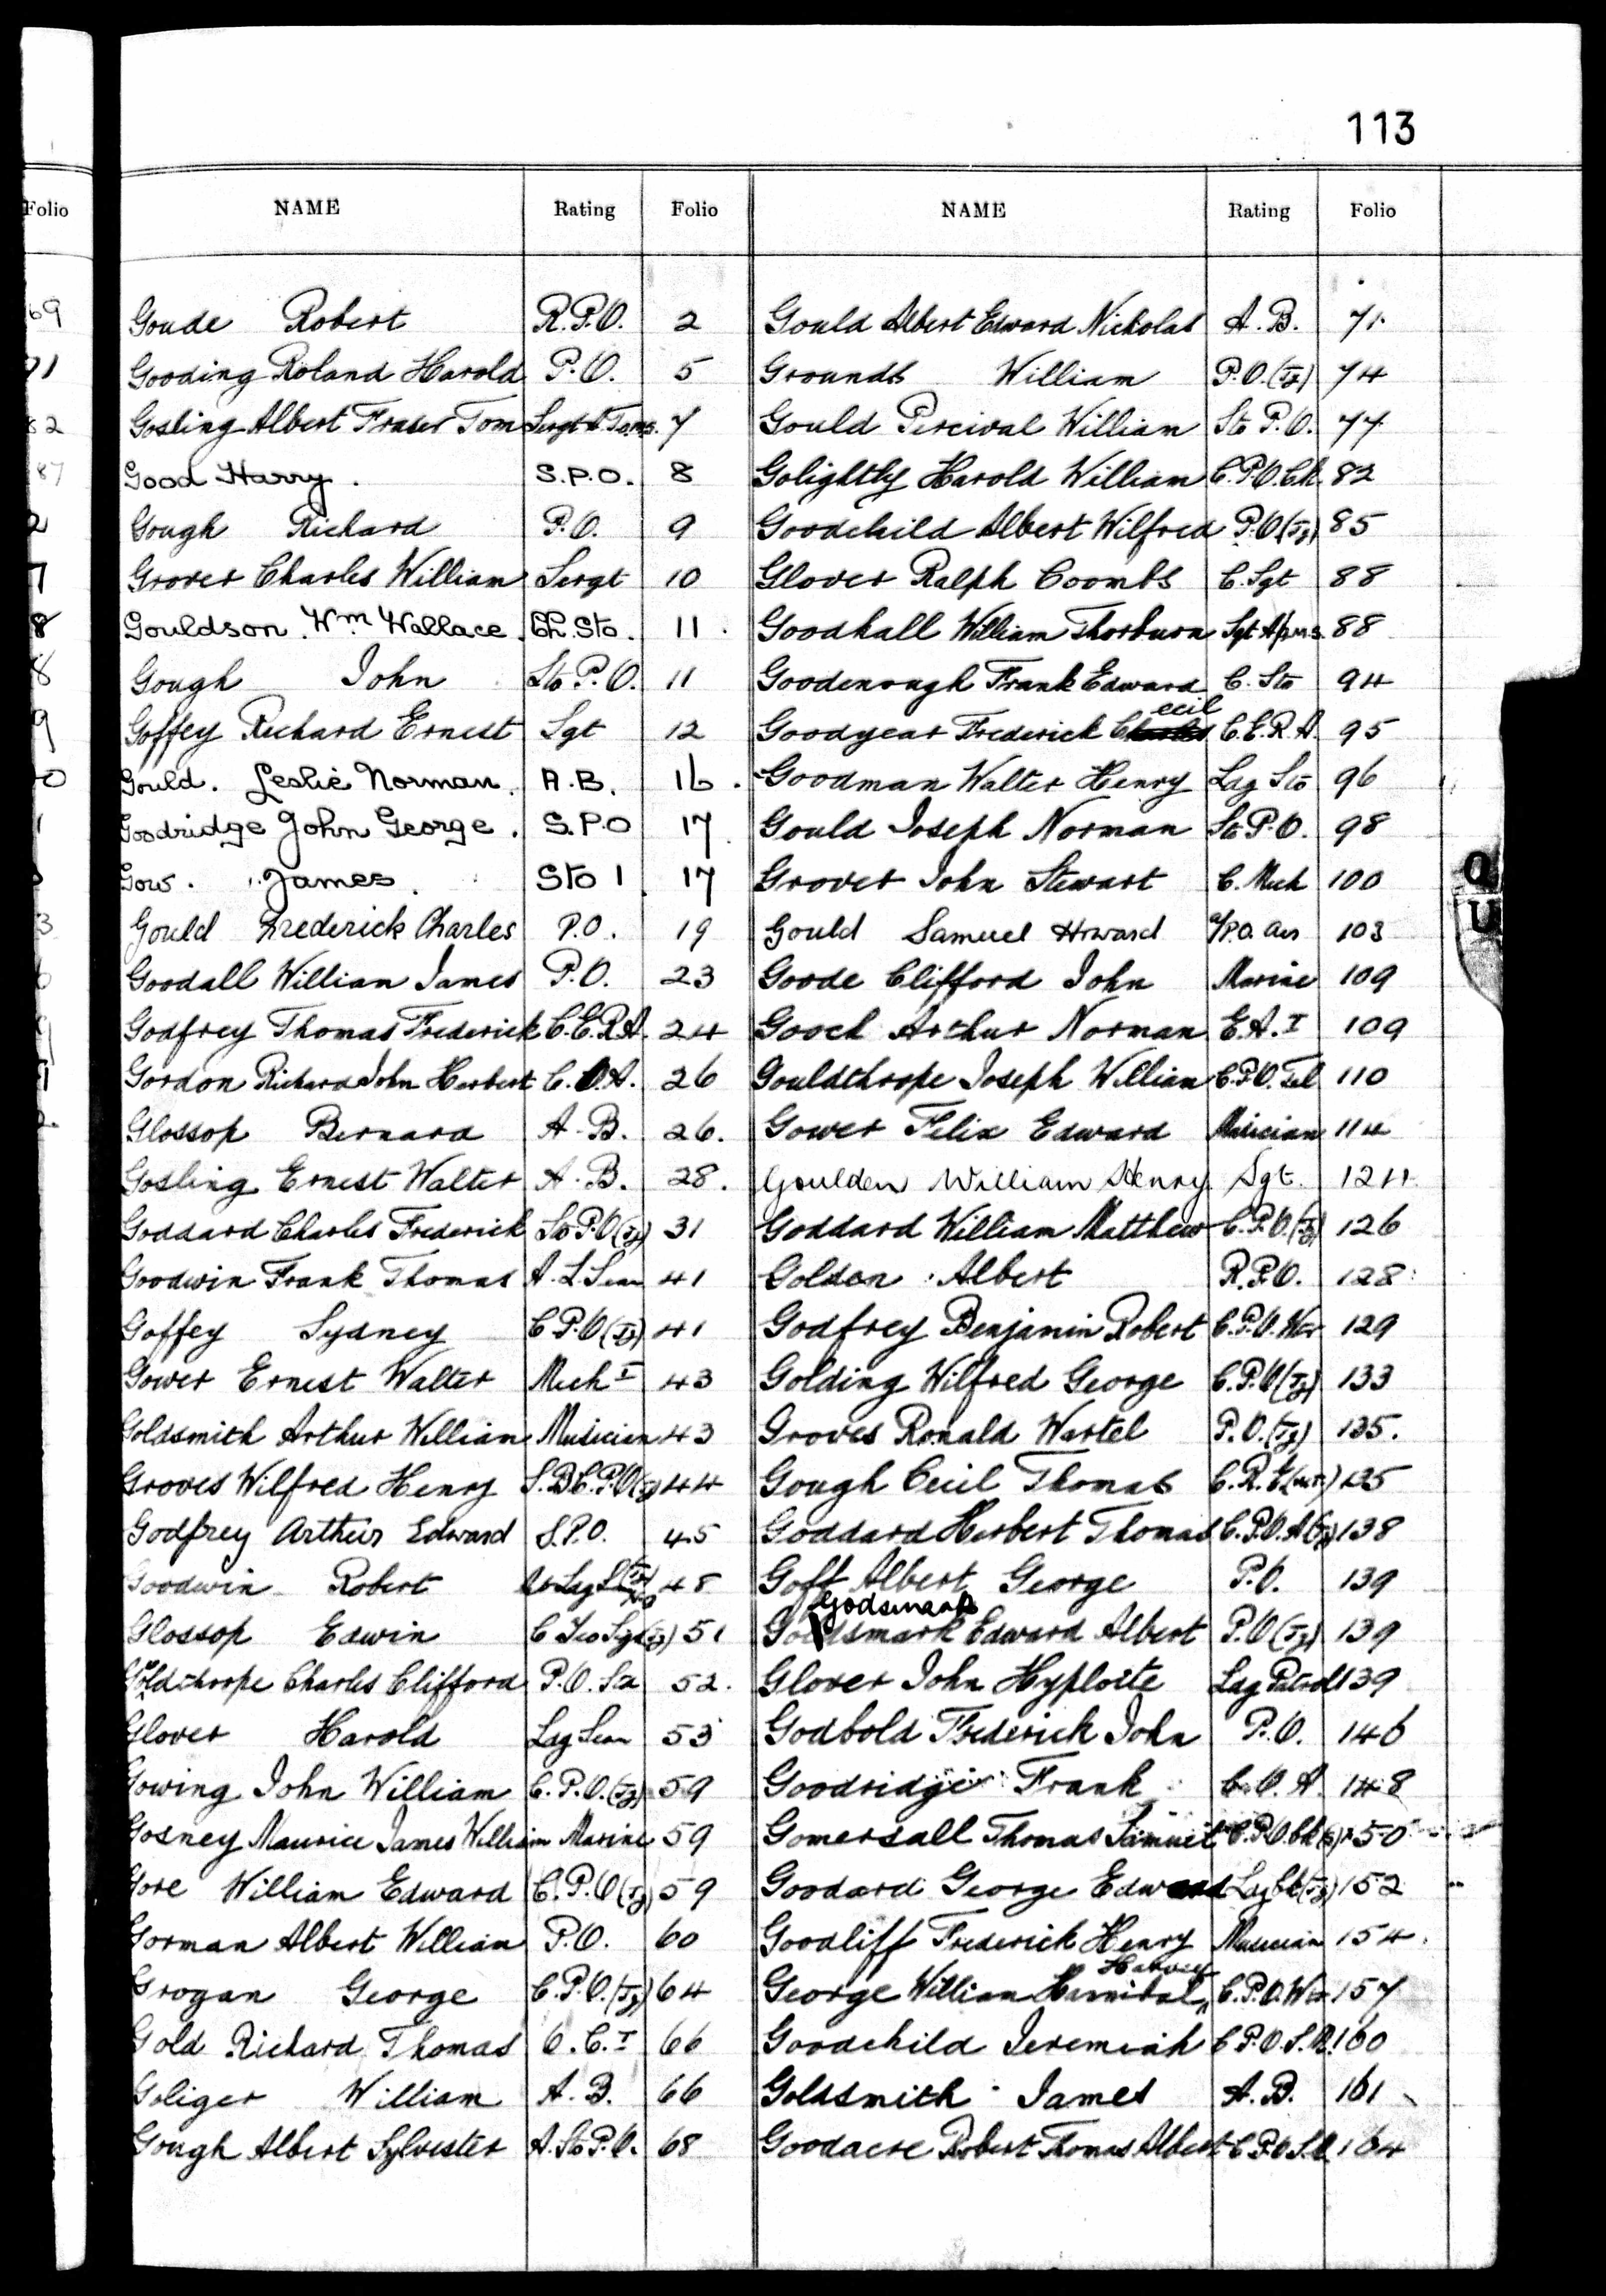 113
Folio
NAME Rating Folio
Goude Robert R.P.O. 2
Gooding Roland Harold P.O. 5
Gosling Albert Fraser Tom Sergt 7
Good Harry. S.P.O. 8
Gough Richard P.O. 9
Grover Charles William Sergt 10
Gouldson. Wm Wallace. Ch. Sto. 11
Gough John Sto P.O. 11
Goffey Richard Ernest Sgt 12
Gould. Leslie Norman. A.B. 16.
Goodridge John George. S.P.O 17
Gow. James. Sto 1 17
Gould Frederick Charles P.O. 19
Goodall William James P.O. 23
Godfrey Thomas Frederick C.E.R.A. 24
Gordon Richard John Herbert C.O.A. 26
Glossop Bernard A.B. 26.
Gosling Ernest Walter A.B. 28.
Goddard Charles Frederick Sto P.O (Tg) 31
Goodwin Frank Thomas A.L.Sean 41
Goffey Sydney C.P.O (Tg) 41
Gower Ernest Walter Mech I 43
Goldsmith Arthur William Musician 43
Groves Wilfred Henry S.B.C.P.O (Tg) 44
Godfrey Arthur Edward S.P.O. 45
Goodwin Robert 48
Glossop Edwin C Yeo Sigs (Tg) 51
Goldthorpe Charles Clifford P.O. 52.
Glover Harold Lag Sean 53
Gowing John William C.P.O. (Tg) 59
Gosney Maurice James William Marine 59
Gore William Edward C.P.O (Tg) 59
Gorman Albert William P.O. 60
Grogan George C.P.O. (Tg) 64
Gold Richard Thomas O.C. I 66
Goliger William A.B. 66
Gough Albert Sylvester A.Sto P.O. 68
NAME Rating Folio
Gould Albert Edward Nicholas A.B. 71.
Grounds William P.O. (Tg) 74
Gould Percival William Sto P.O. 77
Golightly Harold William C.P.O. Ck 82
Goodchild Albert Wilfred P.O (Tg) 85
Glover Ralph Coombs C. Sgt 88
Goodhall William Thorburn Sgt 88
Goodenough Frank Edward C. Sto 94
Goodyear Frederick Cecil C.E.R.A. 95
Goodman Walter Henry Lag Sto 96
Gould Joseph Norman Sto P.O. 98
Grover John Stewart C. Mech 100
Gould Samuel Howard 103
Goode Clifford John Marine 109
Gooch Arthur Norman E.A. I 109
Gouldthorpe Joseph William C.P.O. Tel 110
Gower Felix Edward Musician 114
Goulden William Henry Sgt. 124
Goddard William Matthew C.P.O. (Tg) 126
Golden Albert R.P.O. 128
Godfrey Benjamin Robert C.P.O. Wtr 129
Golding Wilfred George C.P.O (Tg) 133
Groves Ronald Wastel P.O. (Tg) 135.
Gough Cecil Thomas 135
Goddard Herbert Thomas C.P.O. 138
Goff Albert George P.O. 139
Godsmark
Goldsmark Edward Albert P.O (Tg) 139
Glover John Hyploite Lag Patrol 139
Godbold Frederick John P.O. 146
Goodridge Frank C.O.A. 148
Gomersall Thomas Samuel C.P.O. Ck 150
Goodard George Edward Lag Ck (Tg) 152
Goodliff Frederick Henry Musician 154.
Harvey
George William Hannibal C.P.O. Wtr 157
Goodchild Jeremiah C.P.O. S.M. 160
Goldsmith James A.B. 161
Goodacre Robert Thomas Albert C.P.O 164